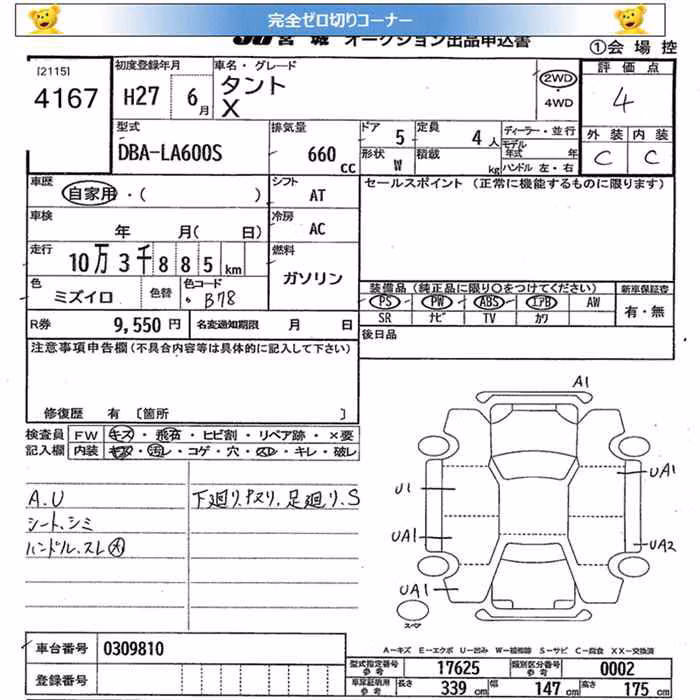 完全ゼロ切りコーナー
JU宮城 オークション出品申込書
①会場控
[2115]
4167
初度登録年月
H27 6月
車名・グレード
タント
X
2WD
・
4WD
評価点
4
外装 内装
C C
型式
DBA-LA600S
排気量
660 cc
ドア 5
定員 4人
形状 W
積載 kg
ディーラー・並行
モデル年式 年
ハンドル 左・右
車歴
自家用・( )
シフト
AT
セールスポイント (正常に機能するものに限ります)
車検
年 月( 日)
冷房
AC
走行
10万3千885km
燃料
ガソリン
色
ミズイロ
色替
色コード
B78
装備品 (純正品に限り○をつけてください)
PS PW ABS エアB AW
SR ナビ TV カワ
新車保証書
有・無
R券 9,550円
名変通知期限 月 日
後日品
注意事項申告欄(不具合内容等は具体的に記入して下さい)
修復歴 有 〔箇所 〕
検査員
記入欄
FW キズ・飛石・ヒビ割・リペア跡・×要
内装 キズ・汚レ・コゲ・穴・スレ・キレ・破レ
A.U
シート、シミ
ハンドル.スレ大
下廻り.サヌリ.足廻り.S
A1
UA1
U1
UA1
UA2
UA1
スペア
A-キズ E-エクボ U-凹み W-補修跡 S-サビ C-腐食 XX-交換済
車台番号 0309810
登録番号
型式指定番号 参考 17625
類別区分番号 参考 0002
車庫証明用 参考 長さ 339cm 幅 147cm 高さ 175cm